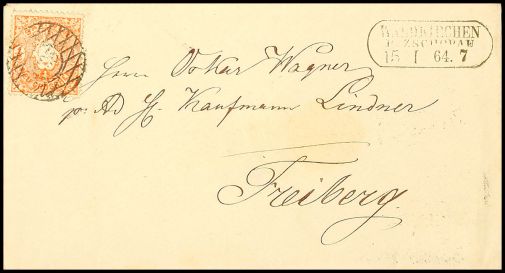 WALDKIRCHEN
B. ZSCHOPAU
15 I 64. 7
Herrn Oskar Wagner
p. Ad H. Kaufmann Lindner
Freiberg.